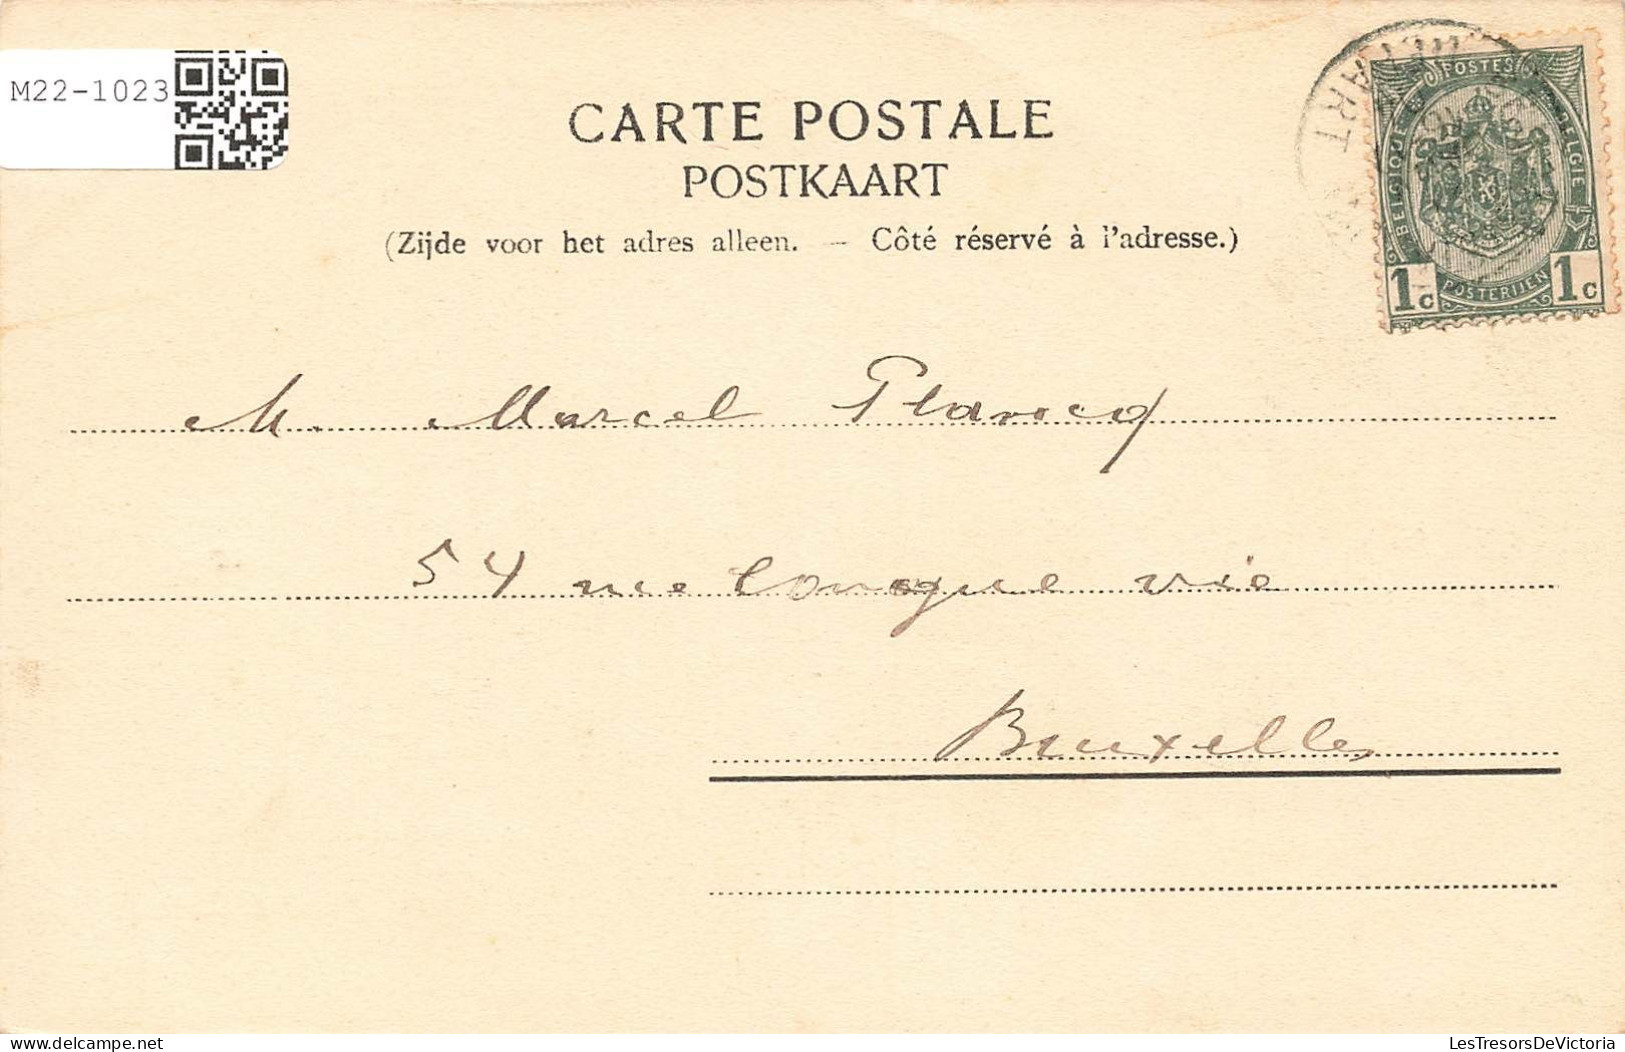 M22-1023
CARTE POSTALE
POSTKAART
(Zijde voor het adres alleen. — Côté réservé à l'adresse.)
POSTES
BELGIQUE BELGIË
1c POSTERIJEN 1c
M. Marcel Plancq
54 rue longue vie
Bruxelles
LesTresorsDeVictoria
delcampe.net